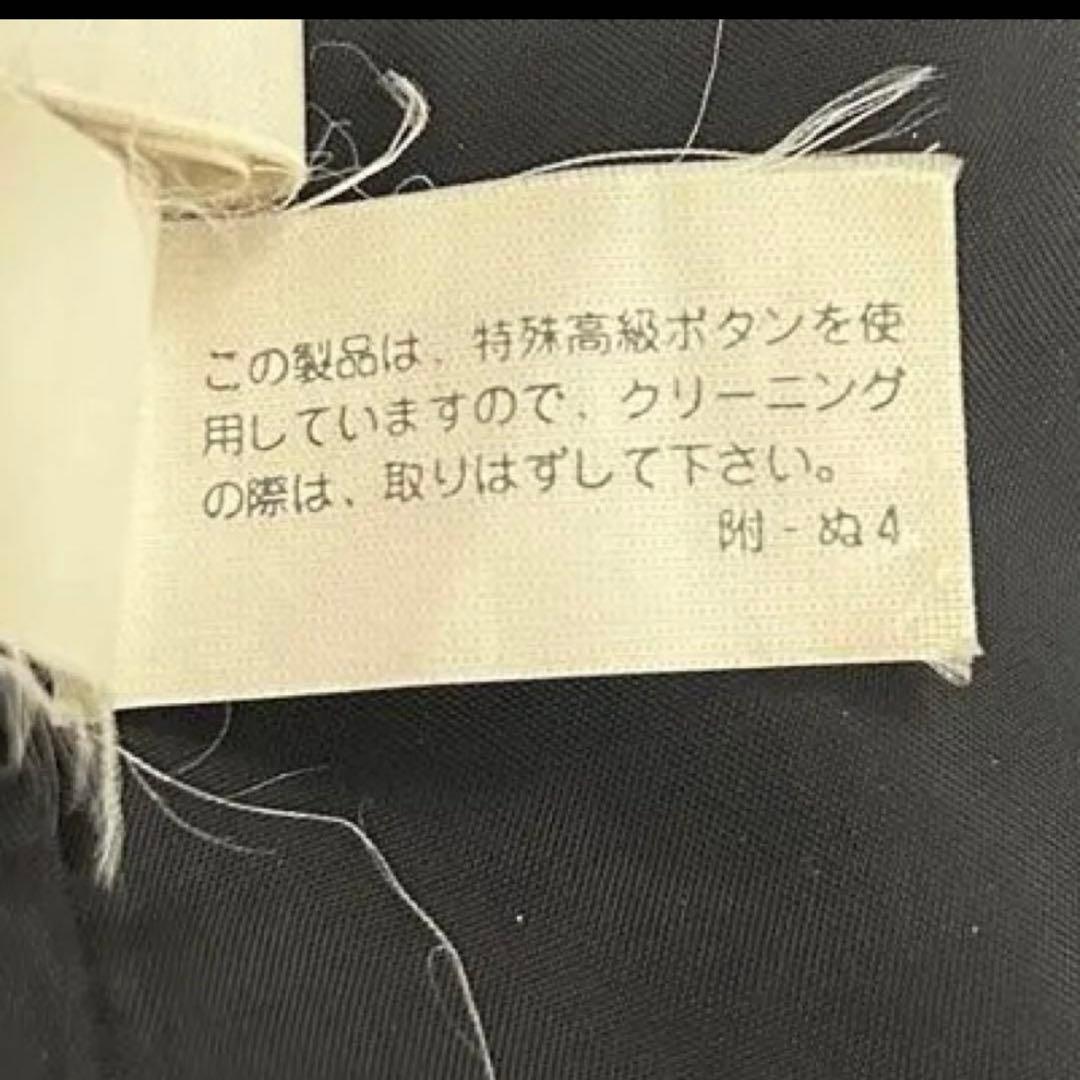 この製品は、特殊高級ボタンを使
用していますので、クリーニング
の際は、取りはずして下さい。
附-ぬ4